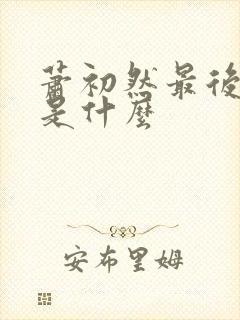 蕭初然最後
是什麼
安布里姆